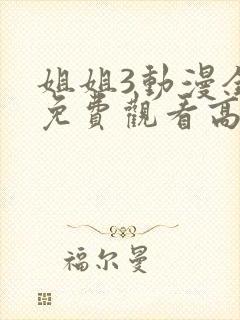 姐姐3動漫
免費觀看高
福尔曼